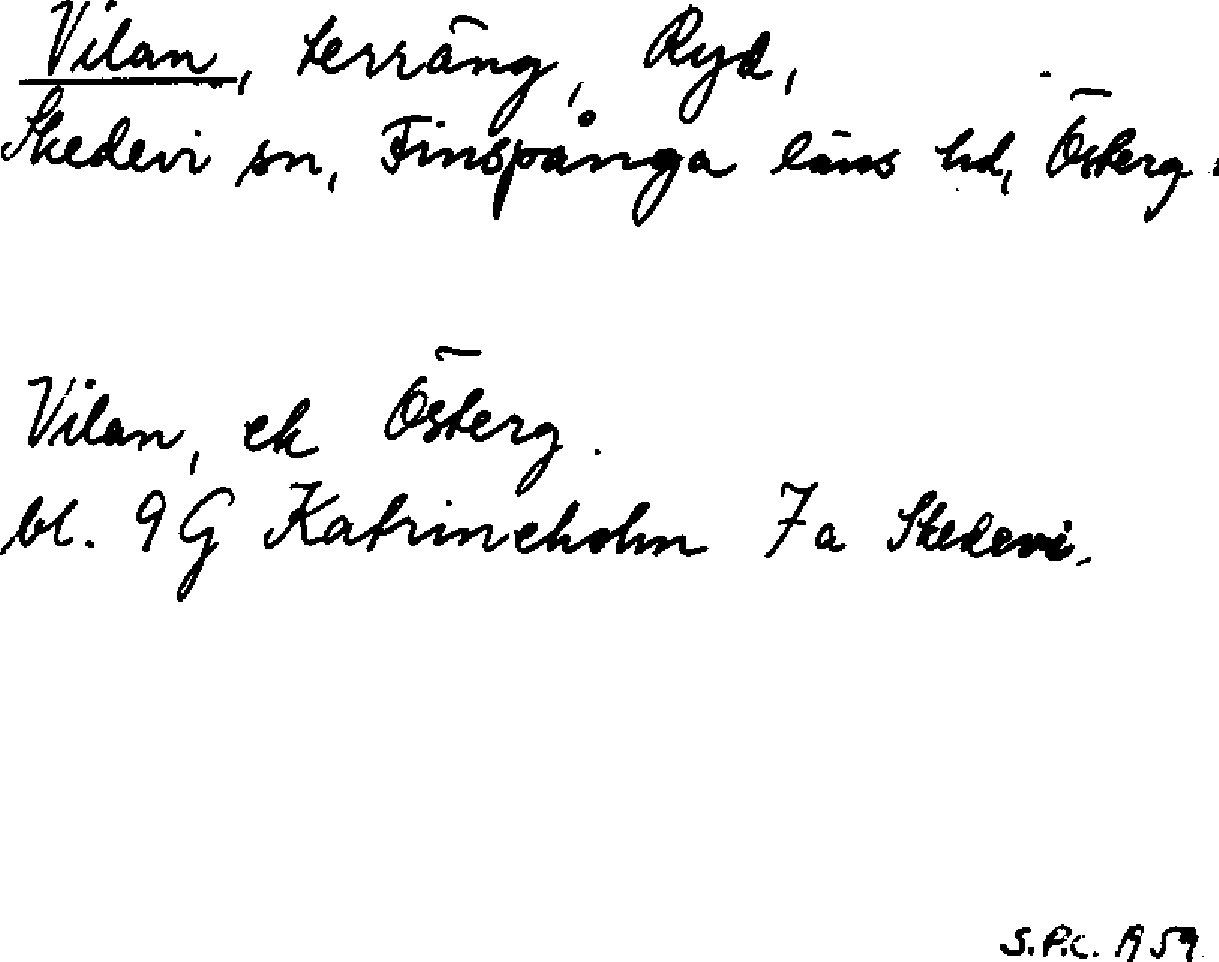 Vilan, terräng, Ryd,
Skedevi sn, Finspånga läns hd, Österg.
Vilan, ek Österg.
bl. 9G Katrineholm 7a Skedevi.
S.P.C. A 59